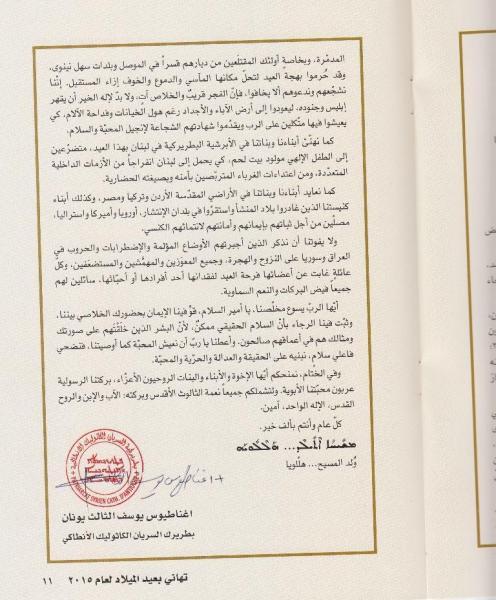 المدمّرة، وبخاصةٍ أولئك المقتلَعين من ديارهم قسراً في الموصل وبلدات سهل نينوى،
وقد حُرموا بهجة العيد لتحلّ مكانها المآسي والدموع والخوف إزاء المستقبل. إنّنا
نشجّعهم وندعوهم ألا يخافوا، فإنّ الفجر قريبٌ والخلاص آتٍ، ولا بدّ لإله الخير أن يقهر
إبليس وجنوده، ليعودوا إلى أرض الآباء والأجداد رغم هول الخيانات وفداحة الآلام، كي
يعيشوا فيها متّكلين على الرب ويقدّموا شهادتهم الشجاعة لإنجيل المحبّة والسلام.
كما نهنّئ أبناءنا وبناتنا في الأبرشية البطريركية في لبنان بهذا العيد، متضرّعين
إلى الطفل الإلهي مولود بيت لحم، كي يحمل إلى لبنان انفراجاً من الأزمات الداخلية
المتعدّدة، ومن اعتداءات الغرباء المتربّصين بأمنه وبصيغته الحضارية.
كما نعايد أبناءنا وبناتنا في الأراضي المقدّسة الأردن وتركيا ومصر، وكذلك أبناء
كنيستنا الذين غادروا بلاد المنشأ واستقرّوا في بلدان الإنتشار، أوروبا وأميركا واستراليا،
مصلّين من أجل ثباتهم بإيمانهم وأمانتهم لانتمائهم الكنسي.
ولا يفوتنا أن نذكر الذين أجبرتهم الأوضاع المؤلمة والإضطرابات والحروب في
العراق وسوريا على النزوح والهجرة، وجميع المعوزين والمهمَّشين والمستضعَفين، وكلّ
عائلةٍ غابت عن أعضائها فرحة العيد لفقدانها أحد أفرادها أو أحبّائها، سائلين لهم
جميعاً فيض البركات والنعم السماوية.
أيّها الربّ يسوع مخلّصنا، يا أمير السلام، قوِّ فينا الإيمان بحضورك الخلاصي بيننا،
وثبّت فينا الرجاء بأنّ السلام الحقيقي ممكنٌ، لأنّ البشر الذين خلقْتَهم على صورتك
ومثالك هم في أعماقهم صالحون. وأعطنا يا ربّ أن نعيش المحبّة كما أوصيتنا، فنضحي
فاعلي سلام، نبنيه على الحقيقة والعدالة والحرّية والمحبّة.
وفي الختام، نمنحكم أيّها الإخوة والأبناء والبنات الروحيون الأعزّاء، بركتنا الرسولية
عربون محبّتنا الأبوية. ولتشملكم جميعاً نعمة الثالوث الأقدس وبركته: الآب والإبن والروح
القدس، الإله الواحد، آمين.
كلّ عام وأنتم بألف خير.
ܡܫܝܚܐ ܐܬܝܠܕ... ܗܠܠܘܝܗ
وُلد المسيح... هللّويا
+ اغناطيوس يوسف
اغناطيوس يوسف الثالث يونان
بطريرك السريان الكاثوليك الأنطاكي
تهاني بعيد الميلاد لعام ٢٠١٥ ١١